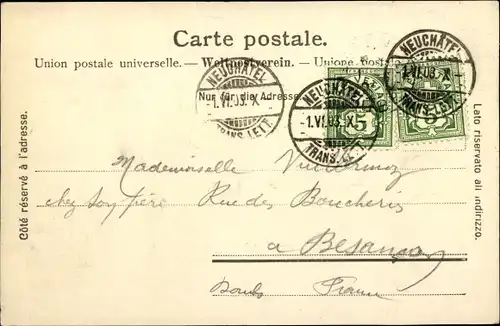 Carte postale.
Union postale universelle. — Weltpostverein. — Unione postale
Nur für die Adresse.
NEUCHATEL
1.VI.03.X
TRANS. LETT.
NEUCHATEL
1.VI.03.X
TRANS. LE
NEUCHATEL
1.VI.03.X
TRANS. LETT.
5
Côté réservé à l'adresse.
Lato riservato all indirizzo.
Mademoiselle
chez son père Rue des Boucheries
a Besançon
Doubs France